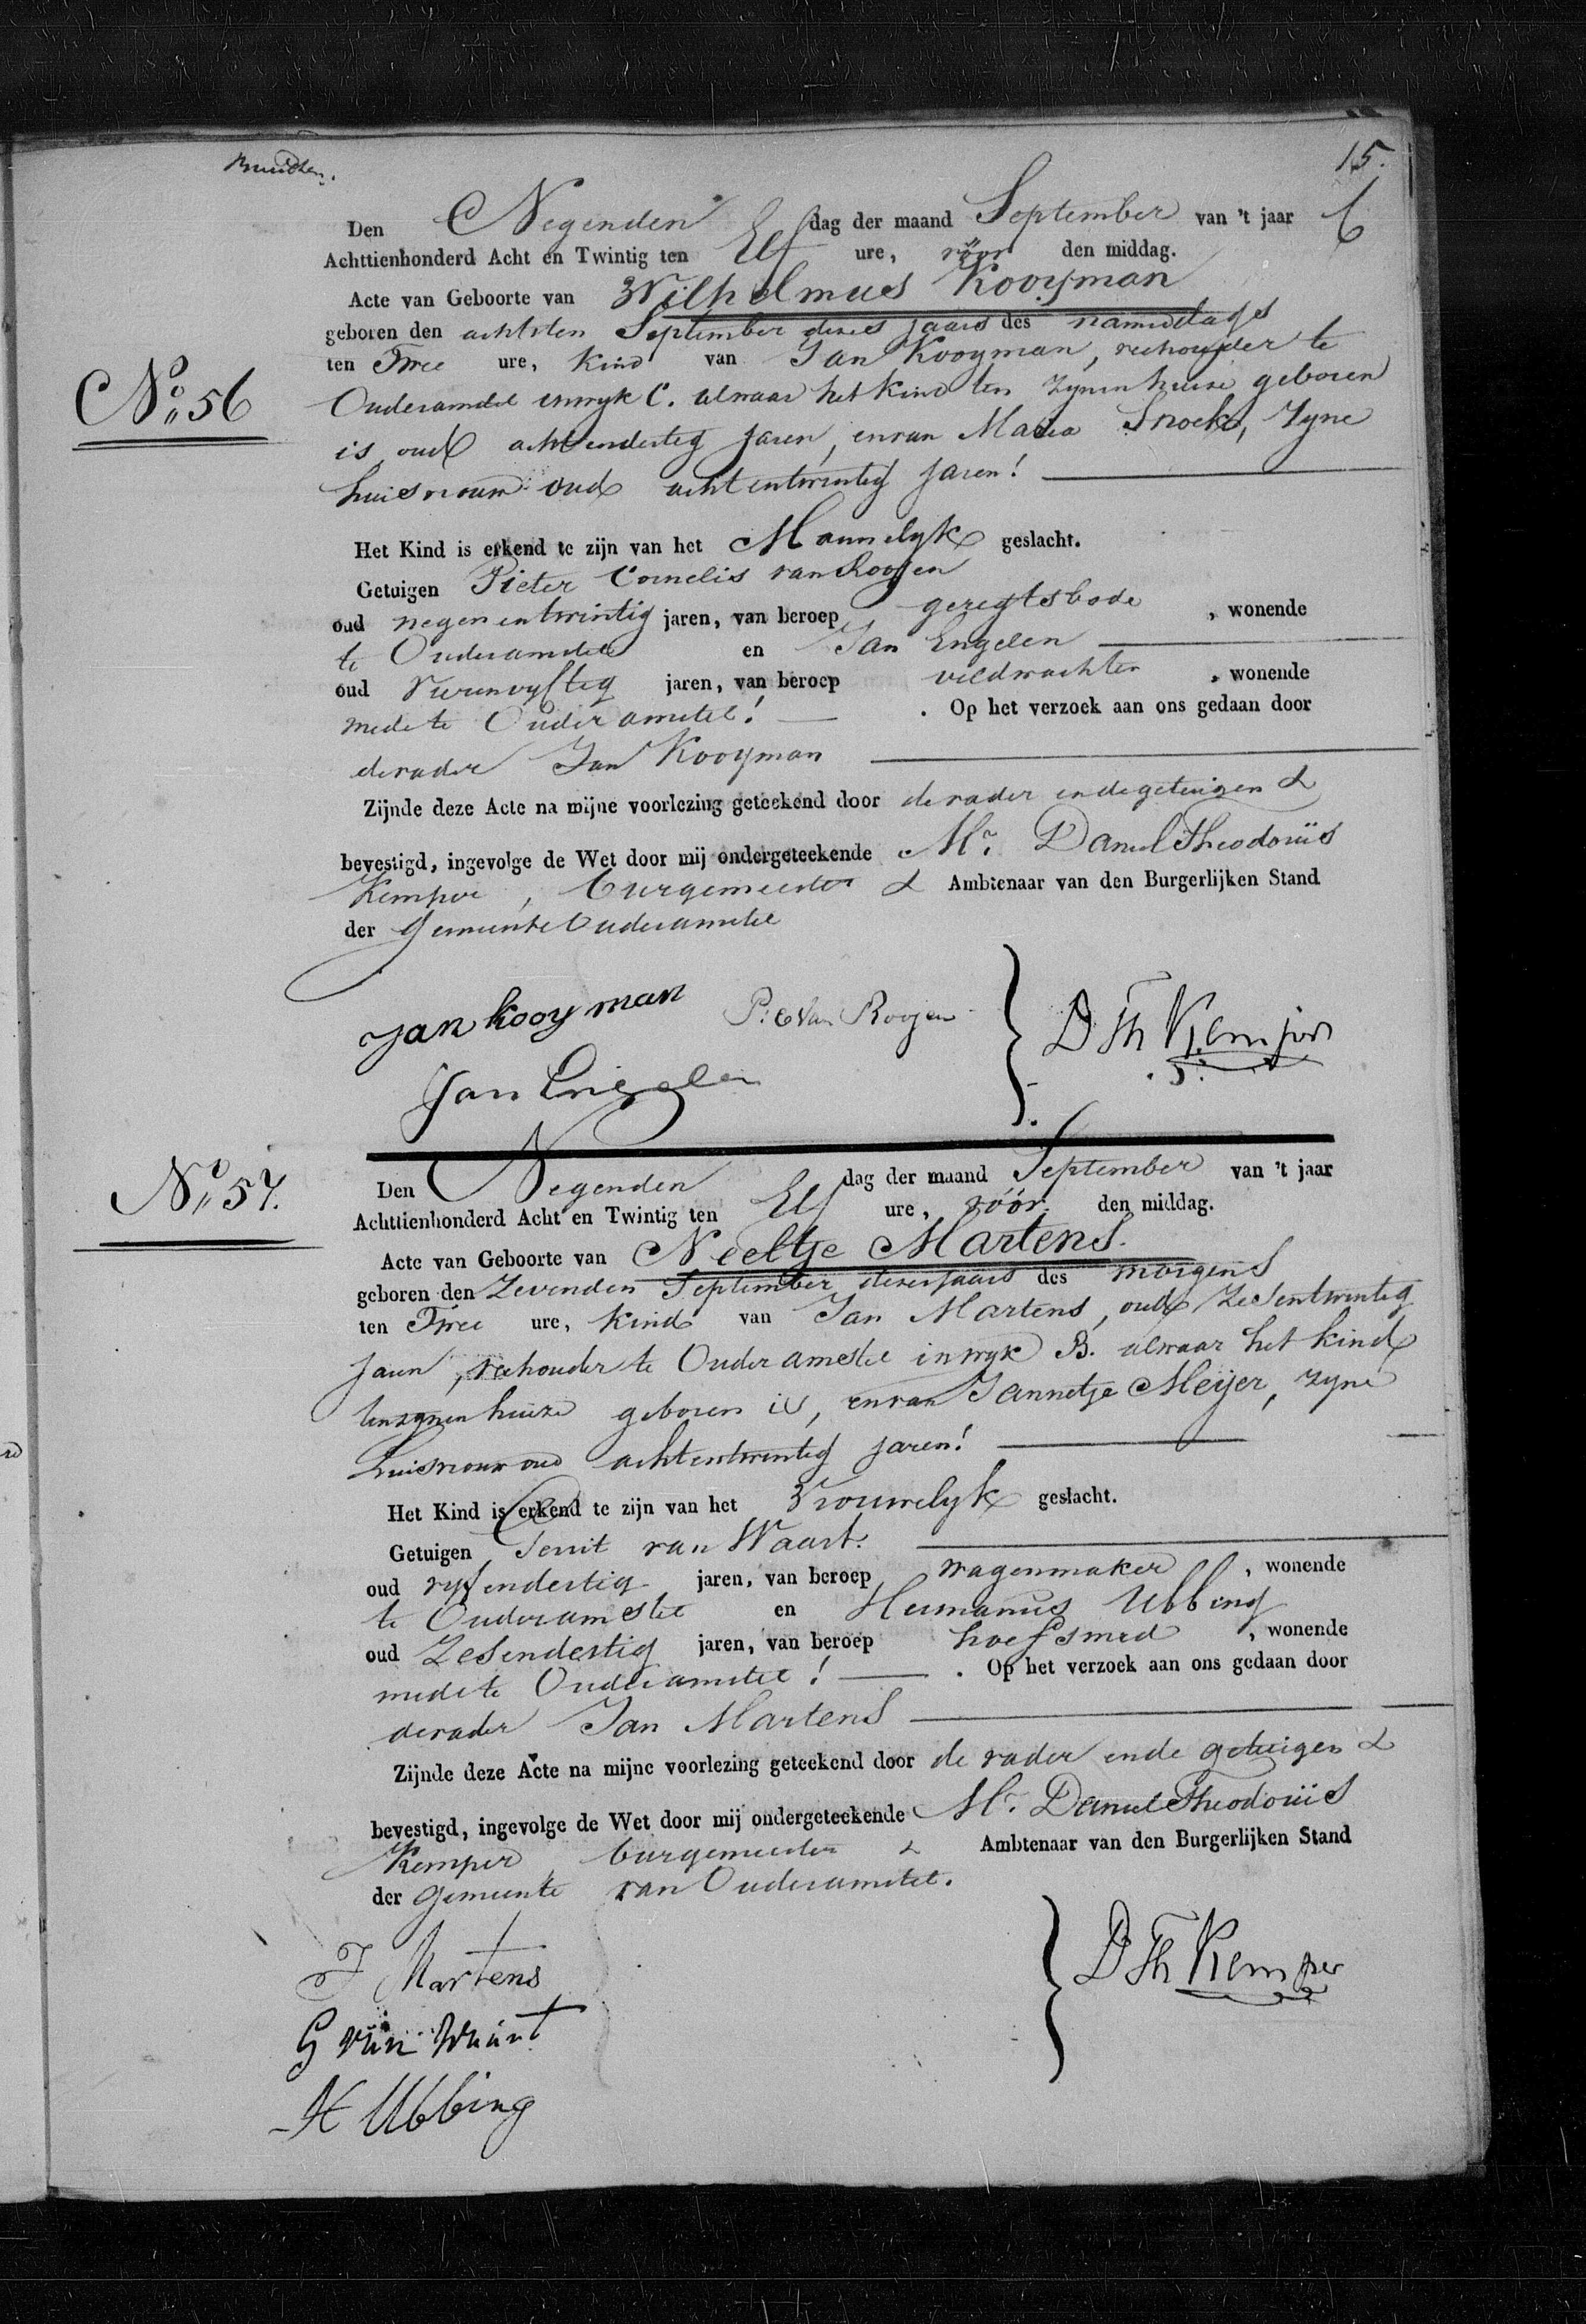 15.
Den Negenden dag der maand September van 't jaar
Achttienhonderd Acht en Twintig ten Elf ure, vóór den middag.
Acte van Geboorte van Wilhelmus Kooyman
geboren den achtsten September dezes jaars des namiddags
ten Twee ure, kind van Jan Kooyman, veehouder te
No. 56
Ouderamstel inwyk C. alwaar het kind ten zynen huize geboren
is, oud achtendertig jaren, en van Maria Snoek, zyne
huisvrouw oud achtentwintig jaren!
Het Kind is erkend te zijn van het Mannelyk geslacht.
Getuigen Pieter Cornelis van Rooyen
oud negenentwintig jaren, van beroep geregtsbode, wonende
te Ouderamstel en Jan Engelen
oud vierenvyftig jaren, van beroep veldwachter, wonende
mede te Ouderamstel! . Op het verzoek aan ons gedaan door
de vader Jan Kooyman
Zijnde deze Acte na mijne voorlezing geteekend door de vader en de getuigen &
bevestigd, ingevolge de Wet door mij ondergeteekende Mr. Daniel Theodorus
Kemper, burgemeester & Ambtenaar van den Burgerlijken Stand
der Gemeente Ouderamstel
Jan kooyman P: C van Rooyen
D Th Kemper
Jan Engelen
No. 57.
Den Negenden dag der maand September van 't jaar
Achttienhonderd Acht en Twintig ten Elf ure, vóór den middag.
Acte van Geboorte van Neeltje Martens.
geboren den Zevenden September dezes jaars des morgens
ten Twee ure, kind van Jan Martens, oud zesentwintig
jaren, veehouder te Ouder amstel inwyk B. alwaar het kind
ten zynen huize geboren is, en van Jannetje Meijer, zyne
huisvrouw oud achtentwintig jaren!
Het Kind is erkend te zijn van het Vrouwelyk geslacht.
Getuigen Gerrit van Waart.
oud vyfendertig jaren, van beroep wagenmaker, wonende
te Ouderamstel en Hermanus Ubbing
oud Zesendertig jaren, van beroep hoefsmed, wonende
mede te Ouderamstel! . Op het verzoek aan ons gedaan door
de vader Jan Martens
Zijnde deze Acte na mijne voorlezing geteekend door de vader en de getuigen &
bevestigd, ingevolge de Wet door mij ondergeteekende Mr. Daniel Theodorus
Kemper, burgemeester & Ambtenaar van den Burgerlijken Stand
der Gemeente van Ouderamstel.
J Martens
D Th Kemper
G van Waart
H Ubbing